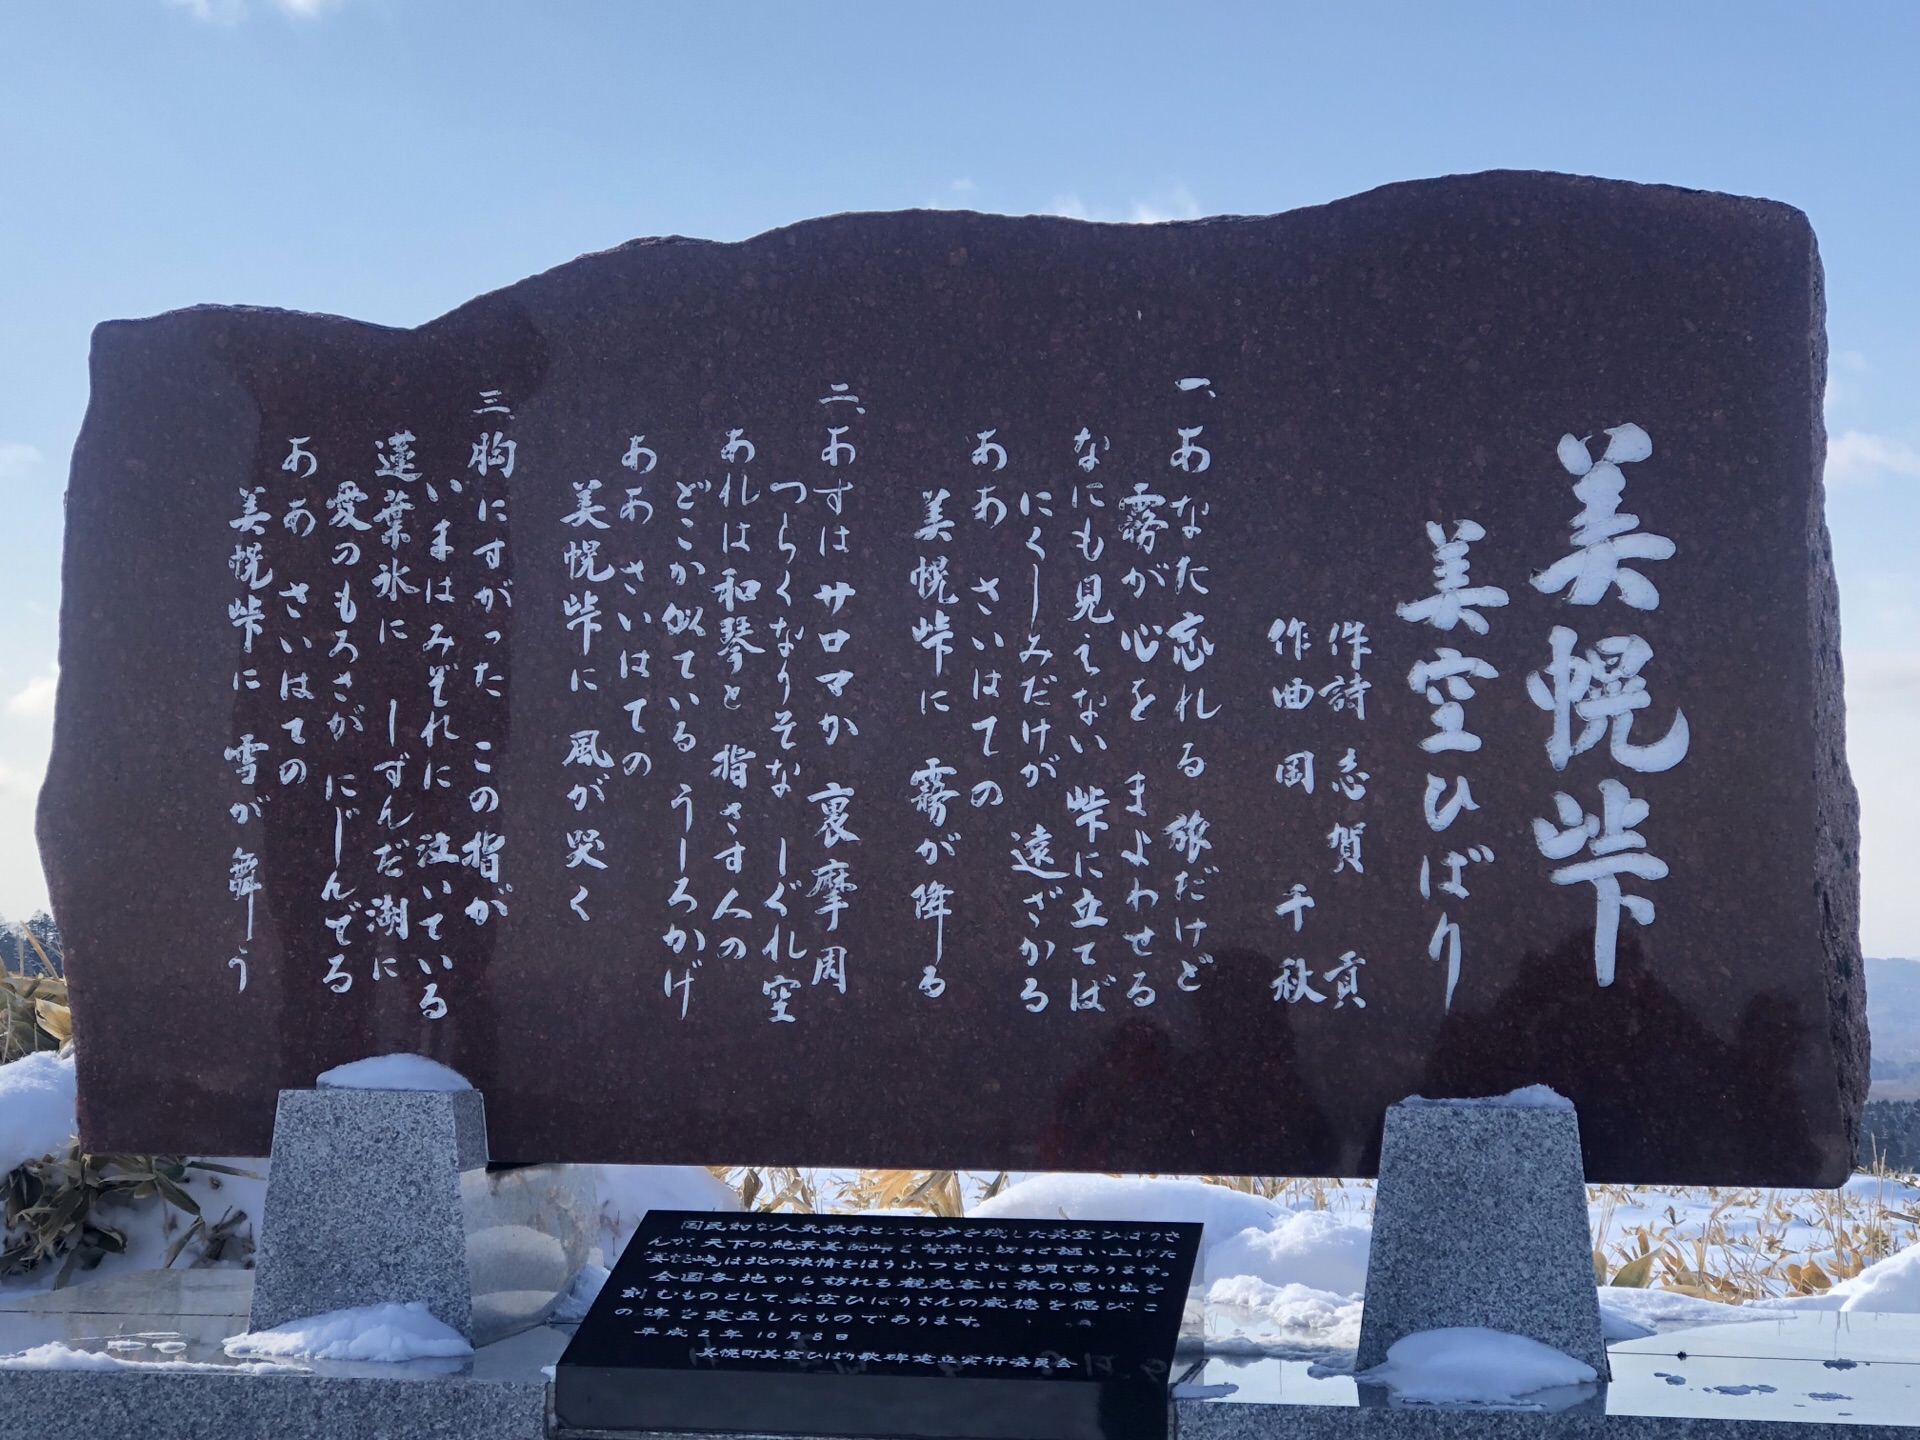 美幌峠
美空ひばり
作詩 志賀 貢
作曲 岡 千秋
一、あなた忘れる 旅だけど
霧が心を まよわせる
なにも見えない 峠に立てば
にくしみだけが 遠ざかる
ああ さいはての
美幌峠に 霧が降る
二、あすは サロマか 裏摩周
つらくなりそな しぐれ空
あれは和琴と 指さす人の
どこか似ている うしろかげ
ああ さいはての
美幌峠に 風が哭く
三、胸にすがった この指が
いまはみぞれに 泣いている
蓮葉氷に しずんだ湖に
愛のもろさが にじんでる
ああ さいはての
美幌峠に 雪が舞う
国民的な人気歌手として名声を残した美空ひばりさ
んが、天下の絶景美幌峠を背景に、切々と謳い上げた
「美幌峠」は北の旅情をほうふつとさせる唄であります。
全国各地から訪れる観光客に旅の思い出を
刻むものとして、美空ひばりさんの威徳を偲びこ
の碑を建立したものであります。
平成2年10月8日
美幌町美空ひばり歌碑建立実行委員会